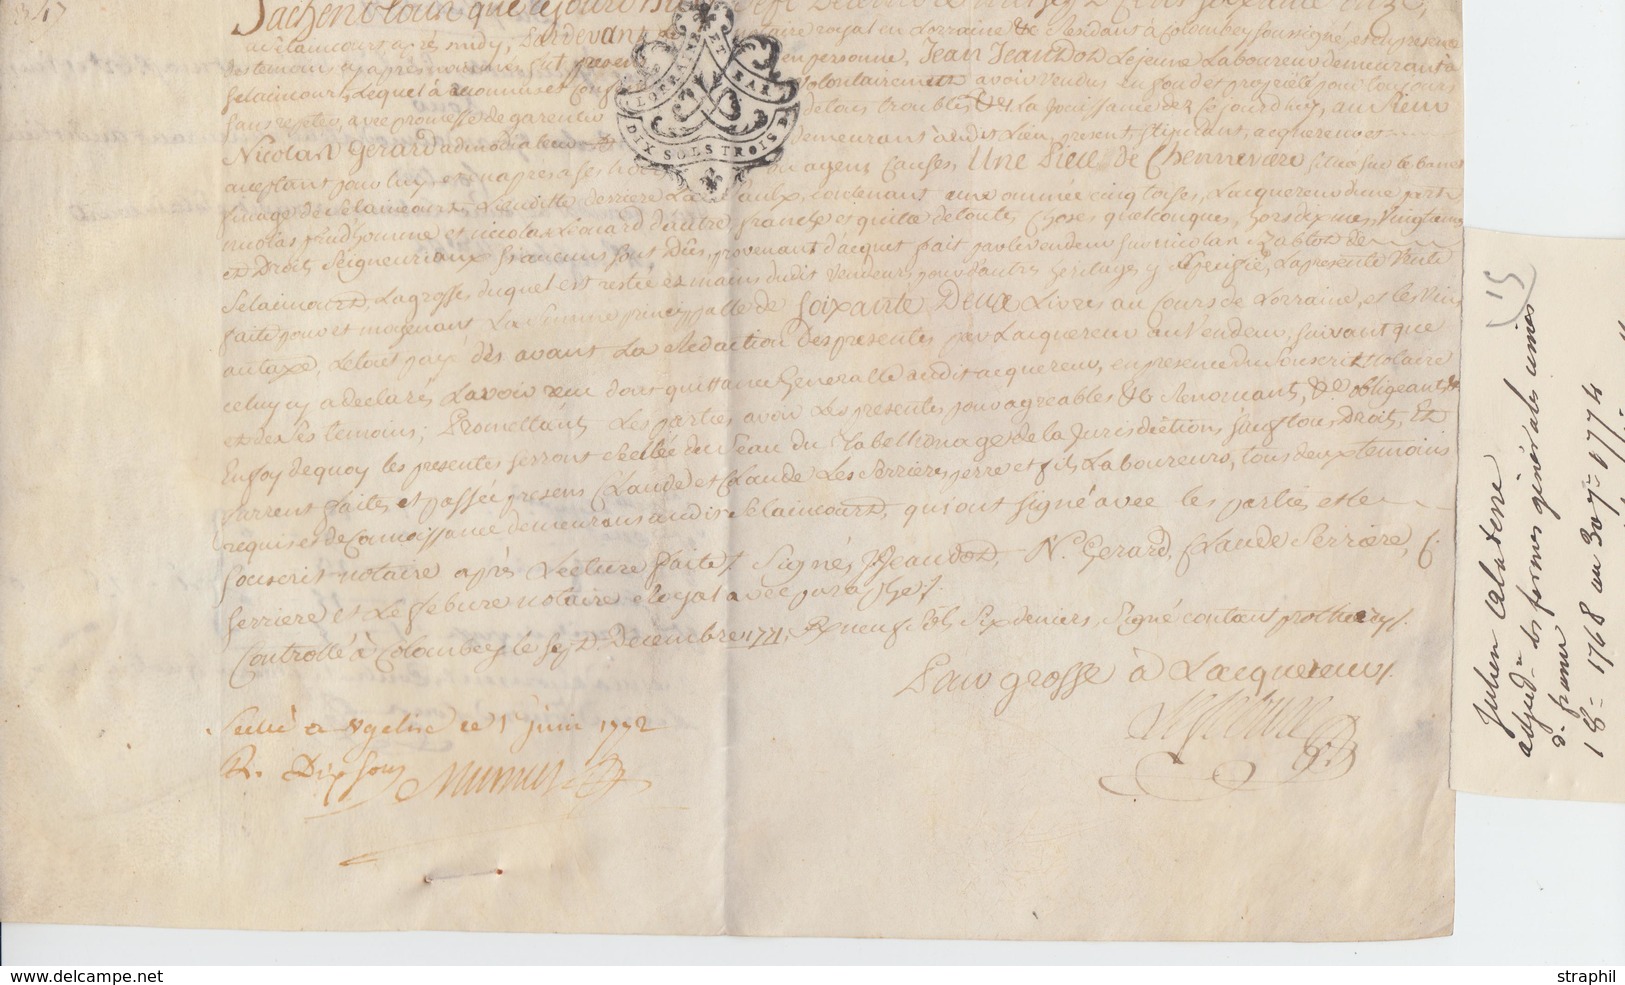 347
Sachent tous que cejourd'huy sept Decembre mil sept Cent soixante onze,
aselaincourt, après midy, Pardevant Le notaire royal en Lorraine &c Residant à Colombey soussigné, et en presence
des temoins cy après nommés, fut present en personne, Jean Jeandot Lejeune Laboureur demeurant à
selaincourt, Lequel à reconnu et Confessé volontairement avoir vendu en fond et propriété pour toujours
sans rejetter, avec promesse de garentir de tous troubles &c La jouissance dez cejourd'huy, au sieur
Nicolas Gerard admodiateur demeurant audit Lieu, present, stipulant, acquereur et
acceptant pour luy, et en après ses hoirs ou ayens Causes, Une Piece de Chenneviere situé sur le ban et
finage de Selaincourt, Lieudit derriere La contenant une ommée cinq toises, Lacquereur d'une part
nicolas prudhomme et nicolas Léonard d'autre, franche et quitte de toutes choses quelconques, hors dixmes, vingtieme
et Droits Seigneuriaux si aucuns sont Dûs, provenant d'acquet fait par le vendeur sur nicolas de
Selaincourt, La grosse duquel est restée es mains dudit vendeur pour d'autres heritages y Specifié, La presente Vente
faite pour et moyenant La Somme principalle de Soixante Deux Livres au Cours de Lorraine, et les vins
au taxe, Le tout payé dès avant La Redaction Des presentes par Lacquereur au Vendeur, suivant que
celuy cy a declarés Lavoir reçu dont quittance Generalle audit acquereur, en presence du Souscrit Notaire
et des Ses temoins; Promettant Les parties avoir Les presentes pour agreables &c Renonçant, &c obligeant &c
En foy de quoy les presentes seront scellée du Sceau du Tabellionage de la Jurisdiction, sauf tous Droits, Et
Furrent faites et passée presens Claude et Claude Les Serrieres pere et fils Laboureurs, tous deux temoins
requis et de Connoissance demeurans audit Selaincourt, qui ont signé avec les parties et le
souscrit notaire après Lecture faite / Signés, J Jeandot, N. Gerard, Claude Serriere, C.
serriere et Lefebure notaire royal avec paraphe /.
Controllé à Colombey le sept Decembre 1771, Rx neuf sols Six deniers, Signé contant /.
Pour grosse à Lacquereur /.
Lefebure
Scellé a Vezelise le 1er juin 1772
R. Dix sous
LORRAINE ET BAR
DIX SOLS TROIS D
15
Julien Alaterre
adjudre des fermes générales unies
de france
18= 1768 au 30 7= 1774
straphil
www.delcampe.net